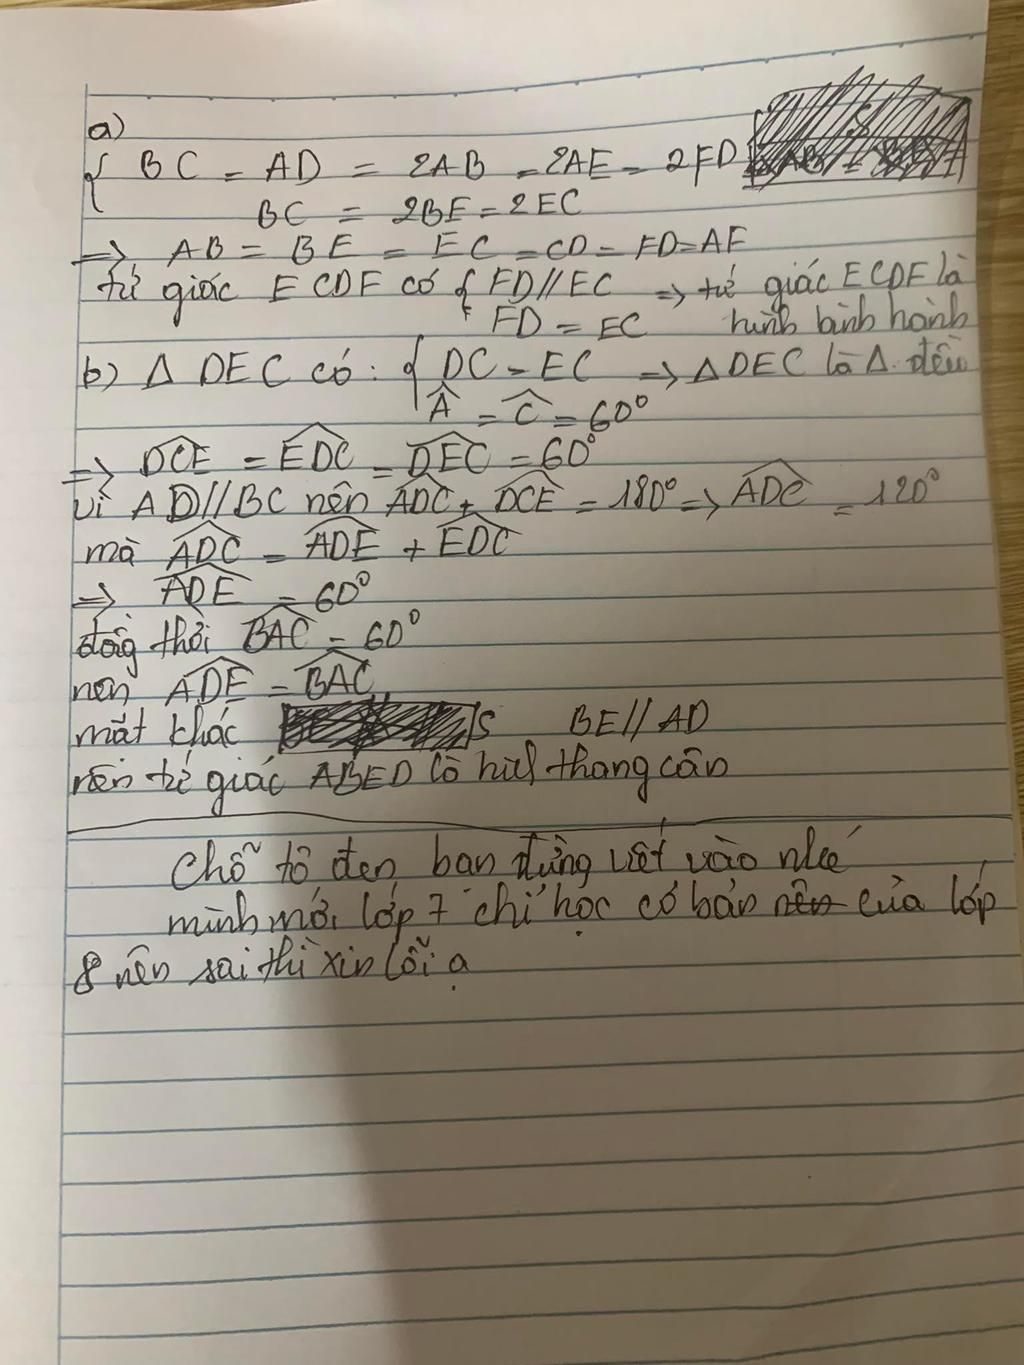 a)
{ BC = AD = 2AB = 2AE = 2FD
BC = 2BE = 2EC
=> AB = BE = EC = CD = FD = AF
tứ giác ECDF có { FD//EC => tứ giác ECDF là
FD = EC hình bình hành
b) Δ DEC có: { DC = EC => Δ DEC là Δ đều
Â = Ĉ = 60°
=> DCE = EDC = DEC = 60°
vì AD//BC nên ADC + DCE = 180° => ADC = 120°
mà ADC = ADE + EDC
=> ADE = 60°
đồng thời BAC = 60°
nên ADE = BAC
mặt khác BE//AD
nên tứ giác ABED là hình thang cân
Chỗ tô đen bạn đừng viết vào nhé
mình mới lớp 7 chỉ học cơ bản nên của lớp
8 nên sai thì xin lỗi ạ